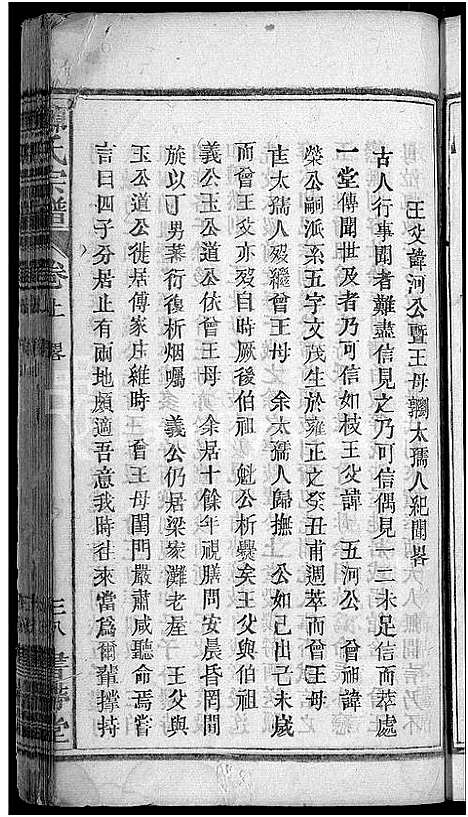 王父諱河公暨王母鄒太孺人紀聞畧
古人行事聞者難盡信見之乃可信偶見一二未足信而萃處
一堂傳聞世及者乃可信如枝王父諱 五河公 曾祖諱
榮公嗣派系五字文茂生於雍正之癸丑甫週萃而曾王母
太孺人歿繼曾王母 余太孺人歸撫 公如己出己未歲
而曾王父亦歿自時厥後伯祖 魁公析爨矣王父與伯祖
義公玉公道公依曾王母 余居十餘年視膳問安晨昏罔間
族以丁男蕃衍復析烟囑 義公仍居梁家灘老座 王父與
玉公道公徙居傅家庄維時 曾王母閨門嚴肅咸聽命焉嘗
言曰四子分居止有兩地頗適吾意我時往來當爲爾輩撐持
氏宗譜 卷上 畧
書帶堂